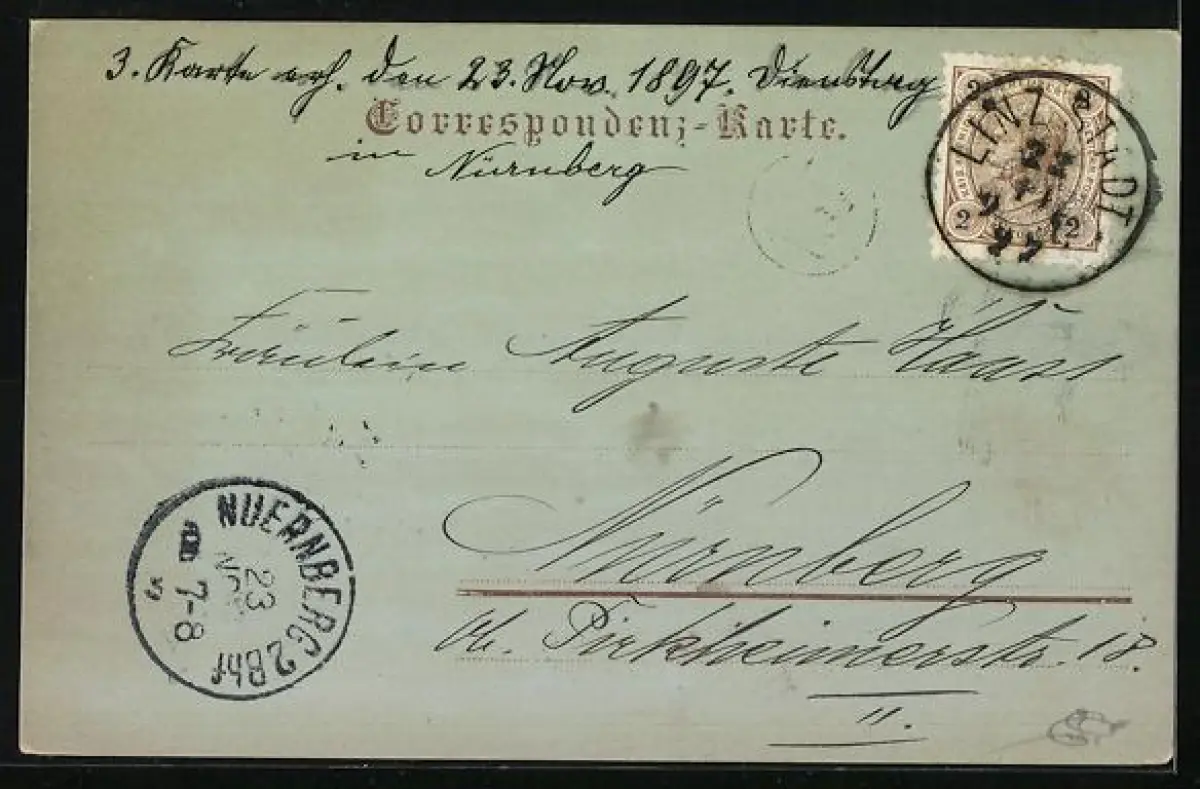 3. Karte erh. den 23. Nov. 1897. Dienstag
Correspondenz-Karte.
in Nürnberg
LINZ STADT
22
11
97
2 2
2 2
Fräulein Auguste Haass
Nürnberg
Ob. Pirkheimerstr. 18.
II.
NUERNBERG 2 Bhf
23
NOV
7-8